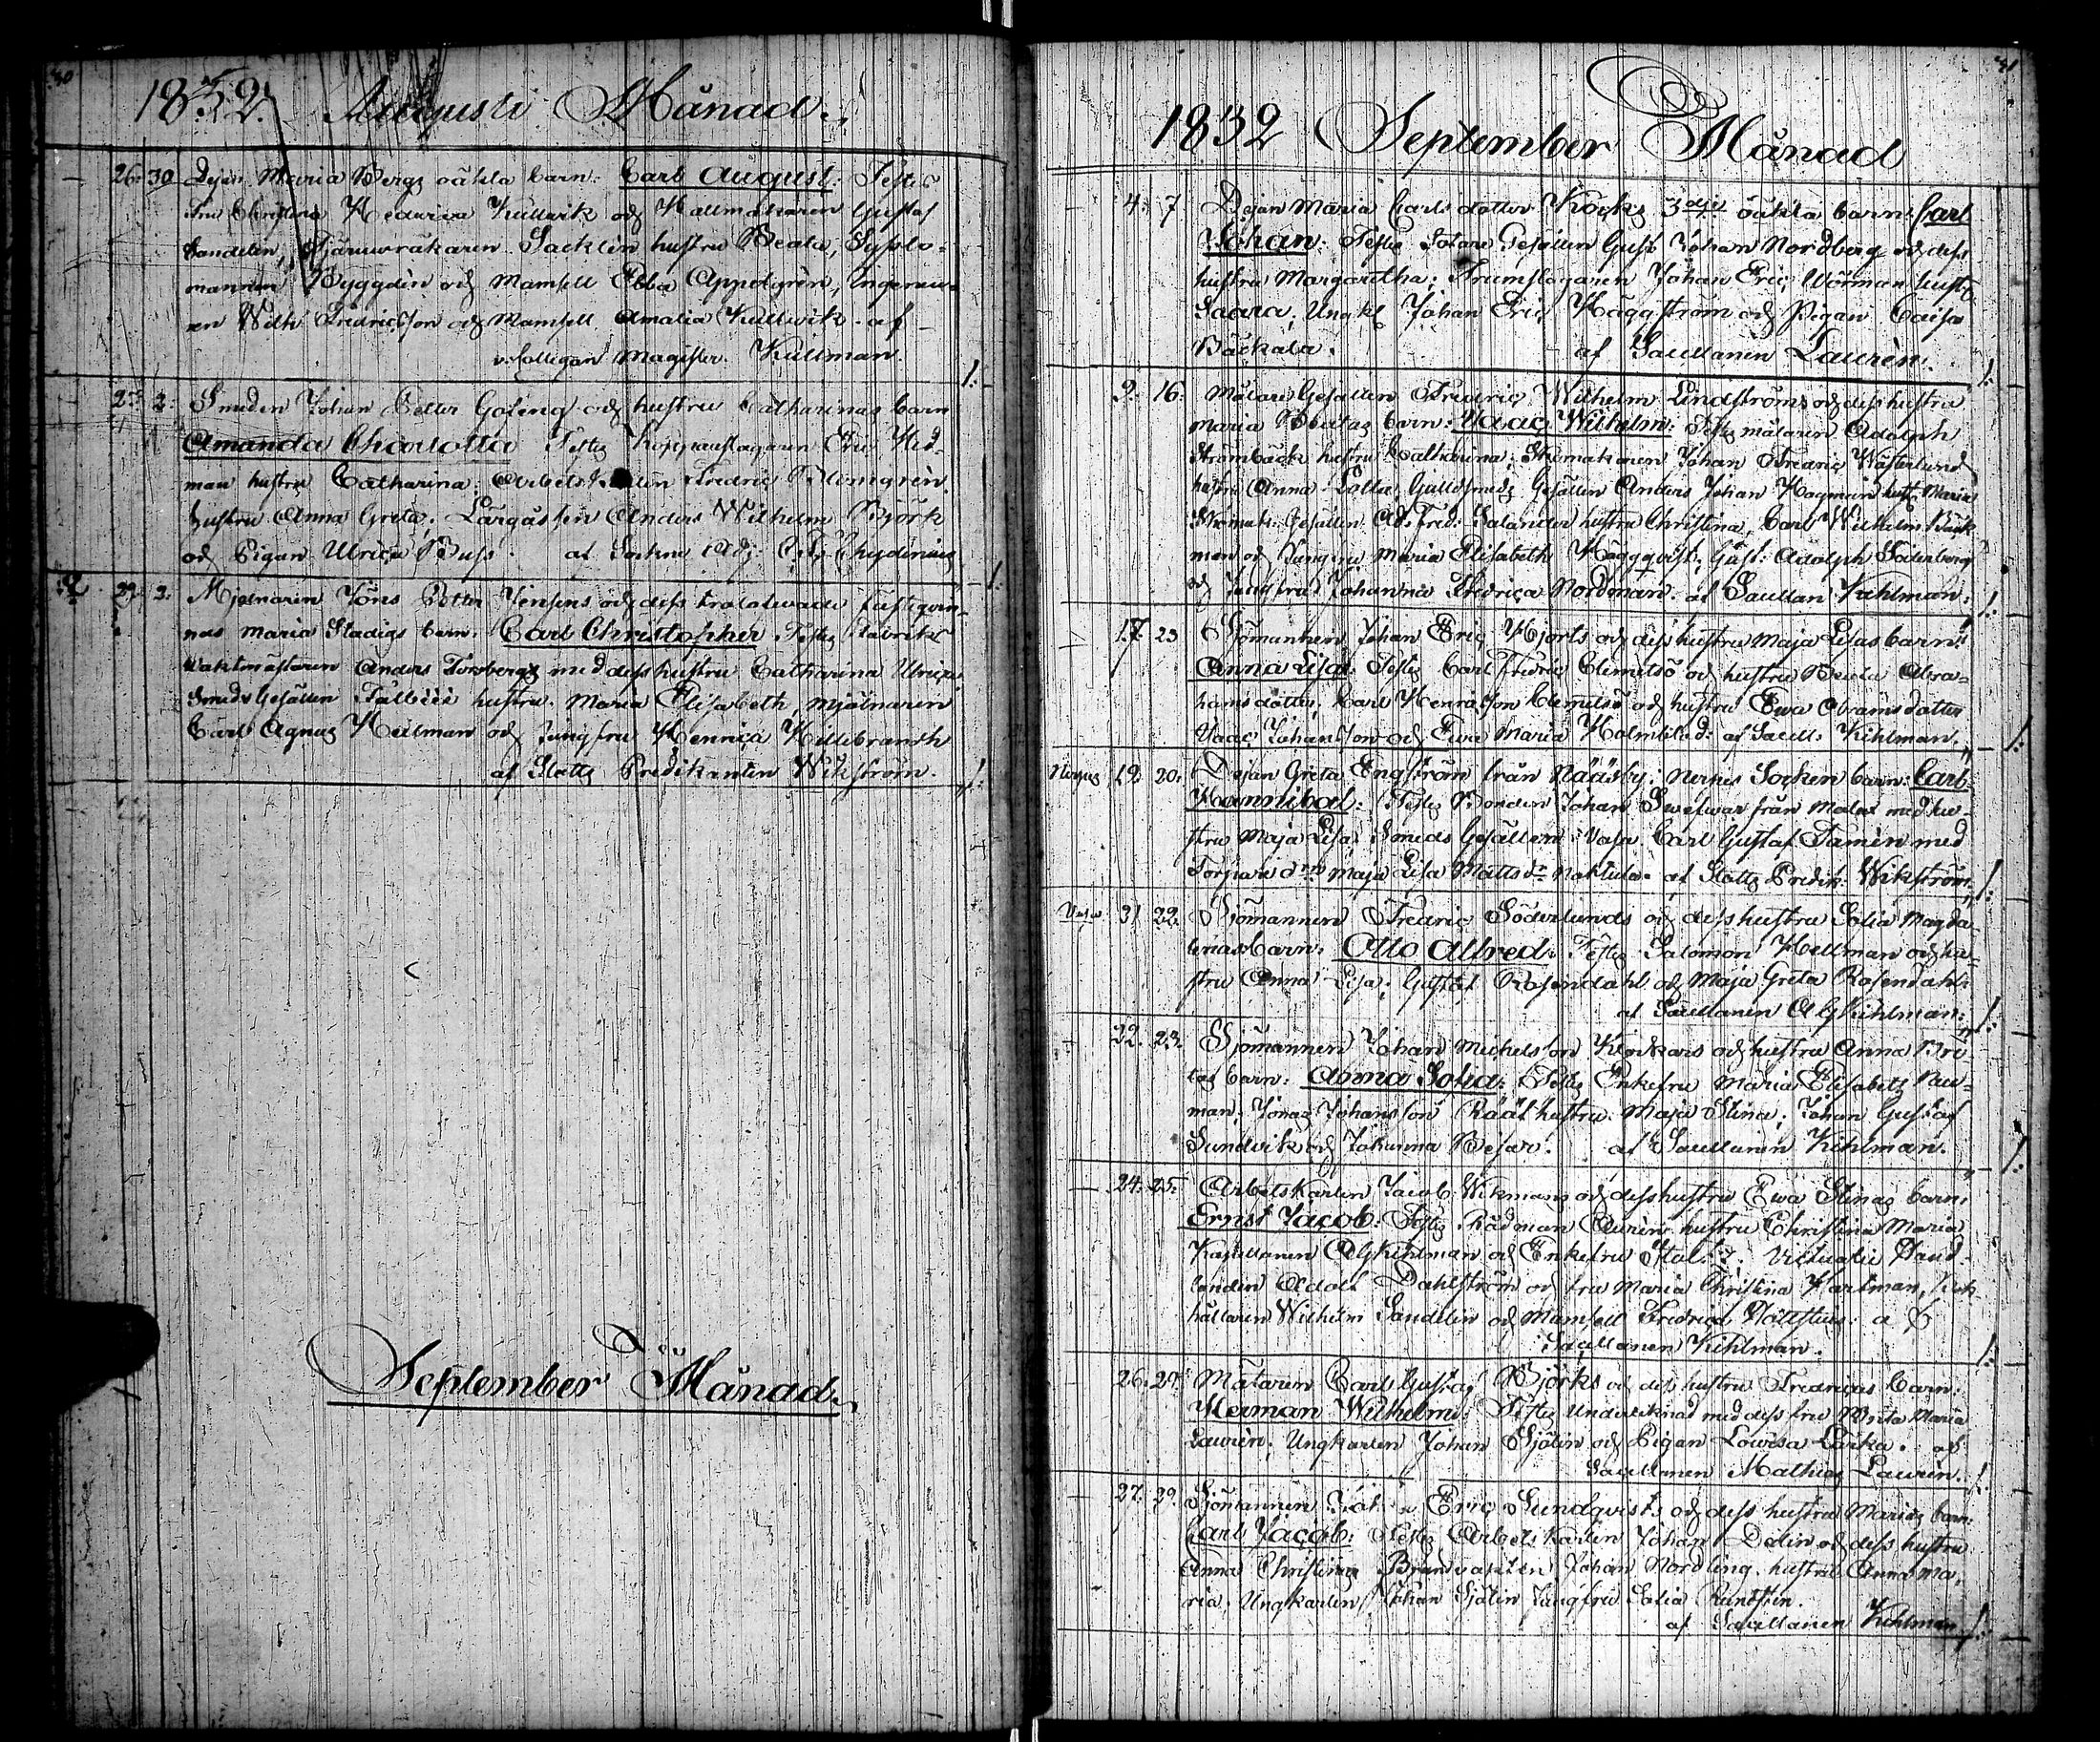 30
1832. Augusti Månad.
26. 30 Pejan Maria Bergs oäkta barn: Carl August. Testes
Fru Christina Hedvica Kullvik och Hattmakaren Gustaf
Sandelin, hustru Beata, Sysslo-
mannen Byggdén och Mamsell Ebba Appelgrén,
Wilh Fredricsson och Mamsell Amalia Kullwik. af
v. Collegan Magister Kullman.
27. 2. Smeden Johan Petter och hustru Catharinas barn
Amanda Charlotta Testes Kopparslagaren Eric Hed-
man hustru Catharina. Fredric Blomgrén
hustru Anna Greta. Lärgåssen Anders Wilhelm Björk
och Pigan Ulrica Buss. af Sockne Adj: Chydenius
29. 2. Mjölnaren Jöns Petter Jensens och dess trolofwade fästeqvin-
nas Maria Stadigs barn. Carl Christopher. Testes Fabriks
Waktmästaren Anders Forsberg med dess hustru Catharina Ulrica
Smeds Gesällen hustru Maria Elisabeth, Mjölnaren
Carl Agnus Hällman och Jungfru Henrica Hillebrandt
af Slotts Predikanten Wikström.
September Månad.
31
1832 September Månad
4. 7 Pejan Maria Carls dotter Köcks 3dje oäkta barn: Carl
Johan. Testes Gesällen Gust Johan Nordberg och dess
hustru Margaretha; Trumslagaren Johan Eric Wörman hustr
Saara; Ungk Johan Eric Häggström och Pigan Caisa
Bäckala. af Sacellanen Laurèn.
9. 16. Målare Gesällen Fredric Wilhelm Lindströms och dess hustru
Maria barn: Isaac Wilhelm: Testes målaren Adolph
Strömbäck hustru Catharina; Skomakaren Johan Fredric Wästerlund
hustru Anna Lotta; Guldsmeds Gesällen Anders Johan Hagman hust. Maria
Skomak: Gesällen Ad. Fred: Salander hustru Christina, Carl Wilhelm Bäck
man och Jungfru Maria Elisabeth Häggqvist; Gust: Adolph Söderberg
och Jungfru Johanna Fredrica Nordman. af Sacellan Kihlman.
17 23 Sjömannen Johan Eric Hjorts och dess hustru Maja Lisas barn:
Anna Lisa: Testes Carl Fredric Clemetsö och hustru Beata Abra-
hamsdotter; Carl Henricsson Clemetsö och hustru Ewa Abramsdotter
Isaac Johansson och Ewa Maria Holmblad: af Sacell. Kihlman.
Nerpes 19 20. Pejan Greta Engström från Nääsby, Nerpes Socken barn: Carl
Hannibal: Testes Bonden Johan från Malax med hu-
stru Maja Lisa; Smeds Gesällen i Vasa Carl Gustaf Tamèn med
Torpare Maja Lisa Matts dr. af Slotts Predik: Wikström
Vasa 31 22. Sjömannen Fredric Söderlunds och dess hustru Sofia Magda-
lenas barn: Otto Alfred: Testes Salomon Hellman och hu-
stru Anna Lisa; Gustaf Rosendahl och Maja Greta Rosendahl.
af Sacellanen A G Kihlman.
22. 23. Sjömannen Johan Michelsson och hustru Anna Bri
tas barn: Anna Sofia. Testes Enkefru Maria Elisabeth Nau-
man; Jonas Johansson hustru Maja Stina; Johan Gustaf
Sundvik och Johanna. af Sacellanen Kihlman.
24. 25. Arbetskarlen Jacob Wikmans och dess hustru Ewa Stinas barn:
Ernst Jacob: Testes Rådman hustru Christina Maria
Kapellanen AG Kihlman och Enkefru; Victualie Hand-
landen Adolf Dahlström och fru Maria Christina Hartman,
hållaren Wilhelm Sandelin och Mamsell Fredrica. af
Sacellanen Kihlman.
26. 29. Målaren Carl Gustaf Björks och dess hustru Fredricas barn:
Herman Wilhelm: Testes undertecknad med dess fru Brita Maria
Laurèn. Ungkarlen Johan Sjölin och Pigan Lowisa. af
Sacellanen Mathias Laurèn.
27. 29. Sjömannen Eric Sundqvists och dess hustru Marias barn:
Carl Jacob. Testes Arbets Karlen Johan Dalin och dess hustru
Anna Christina Johan Nordling hustru Anna Ma-
ria; Ungkarlen Johan Sjölin Jungfru Sofia.
af Sacellanen Kihlman.